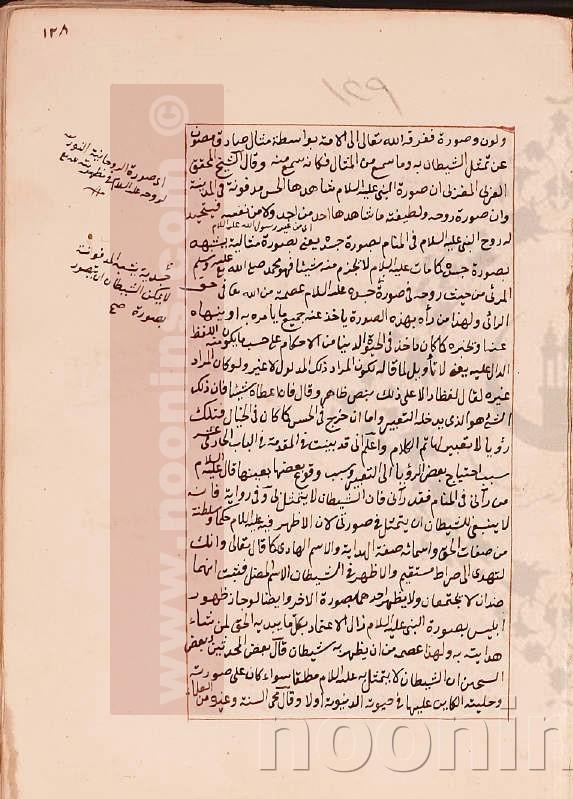 ١٢٨
ولون وصورة فغرقه الله تعالى الى الامة بواسطة مثال صادق مصون
عن تمثل الشيطان به وما سمع من المثال فكانه سمع منه وقال الشيخ المحقق
العربى المغربى ان صورة النبى عليه السلام شاهدها الحس مدفونة فى المدينة
وان صورة روحه ولطيفته ما شاهدها احد من احد ولا من نفسه فيتجسد
اى من غير رسول الله عليه السلام
له روح النبى عليه السلام فى المنام بصورة جسده يعنى بصورة مثالية يشبهه
بصورة جسده كما مات عليه السلام لا يخرم منه شيئا فهو محمد صلى الله عليه وسلم
المرئى من حيث روحه فى صورة جسده عليه السلام عصمة من الله تعالى فى حق
الرائى ولهذا من رآه بهذه الصورة ياخذ عنه جميع ما يامره به او ينهاه
عنه او يخبره كما كان ياخذ فى الحيوة الدنيا من الاحكام على حسب ما يكون منه اللفظ
الدال عليه يعنى لا تأويل لما قاله بكون المراد ذلك المدلول لا غير ولو كان المراد
غيره لقال لفظا دالا على ذلك بنص ظاهر وقال فان اعطاه شيئا فان ذلك
الشئ هو الذى يدخله التعبير واما ان خرج فى الحس كما كان فى الخيال فتلك
رؤيا لا تعبير لها تم الكلام واعلم انى قد بينت فى المقدمة فى الباب الحادى عشر
سبب احتياج بعض الرؤيا الى التعبير وسبب وقوع بعضها بعينها قال عليه السلام
من رآنى فى المنام فقد رآنى فان الشيطان لا يتمثل لى وفى رواية فانه
لا ينبغى للشيطان ان يتمثل فى صورتى لان الاظهر فيه عليه السلام حكما وسلطنة
من صفات الحق واسمائه صفة الهداية والاسم الهادى كما قال تعالى وانك
لتهدى الى صراط مستقيم والاظهر فى الشيطان الاسم المضل فثبت انهما
ضدان لا يجتمعان ولا يظهر احدهما بصورة الاخر وايضا لو جاز ظهور
ابليس بصورة النبى عليه السلام زال الاعتماد بكل ما يبديه الحق لمن شاء
هدايته به ولهذا عصم من ان يظهر به شيطان قال بعض المحدثين بعض
ان الشيطان لا يتمثل به عليه السلام مطلقا سواء كان على صورته
وحليته الكاين عليها فى حيوته الدنيوية او لا وقال محى السنة وغيره من العلماء
اى صورة الروحانية
لروحه عليه السلام
لا يمكن الشيطان ان يتصور
بصورة صح
www.noorins.com
noornin